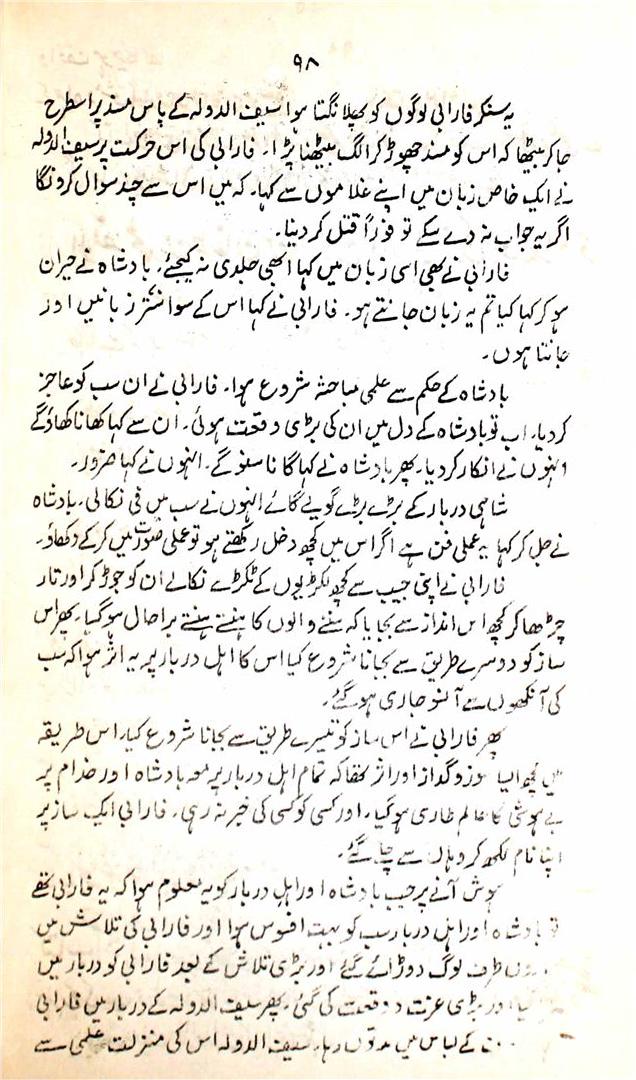 ۹۸
یہ سنکر فارابی لوگوں کو پھلانگتا ہوا سیف الدولہ کے پاس مسند پر اسطرح
جا کر بیٹھا کہ اس کو مسند چھوڑ کر الگ بیٹھنا پڑا۔ فارابی کی اس حرکت پر سیف الدولہ
نے ایک خاص زبان میں اپنے غلاموں سے کہا۔ کہ میں اس سے چند سوال کرونگا
اگر یہ جواب نہ دے سکے تو فوراً قتل کر دینا۔
فارابی نے بھی اسی زبان میں کہا ابھی جلدی نہ کیجئے۔ بادشاہ نے حیران
ہو کر کہا کیا تم یہ زبان جانتے ہو۔ فارابی نے کہا اس کے سوا ستر زبانیں اور
جانتا ہوں۔
بادشاہ کے حکم سے علمی مباحثہ شروع ہوا۔ فارابی نے ان سب کو عاجز
کر دیا۔ اب تو بادشاہ کے دل میں ان کی بڑی وقعت ہوئی۔ ان سے کہا کھانا کھاؤ گے
انہوں نے انکار کر دیا۔ پھر بادشاہ نے کہا گانا سنو گے۔ انہوں نے کہا ضرور۔
شاہی دربار کے بڑے بڑے گویے گائے انہوں نے سب میں فی نکالی۔ بادشاہ
نے جل کر کہا یہ عملی فن ہے اگر اس میں کچھ دخل رکھتے ہو تو عملی صورت میں کر کے دکھاؤ۔
فارابی نے اپنی جیب سے کچھ لکڑیوں کے ٹکڑے نکالے ان کو جوڑ کر اور تار
چڑھا کر کچھ اس انداز سے بجایا کہ سننے والوں کا ہنستے ہنستے برا حال ہو گیا۔ پھر اس
ساز کو دوسرے طریق سے بجانا شروع کیا اس کا اہل دربار پر یہ اثر ہوا کہ سب
کی آنکھوں سے آنسو جاری ہو گئے۔
پھر فارابی نے اس ساز کو تیسرے طریق سے بجانا شروع کیا۔ اس طریقہ
میں کچھ ایسا سوز و گداز اور اثر تھا کہ تمام اہل دربار پر معہ بادشاہ اور خدام پر
بے ہوشی کا عالم طاری ہو گیا۔ اور کسی کو کسی کی خبر نہ رہی۔ فارابی ایک ساز پر
اپنا نام لکھ کر وہاں سے چلے گئے۔
ہوش آنے پر جب بادشاہ اور اہل دربار کو یہ معلوم ہوا کہ یہ فارابی تھے
تو بادشاہ اور اہل دربار سب کو بہت افسوس ہوا اور فارابی کی تلاش میں
طرف لوگ دوڑائے گئے اور بڑی تلاش کے بعد فارابی کو دربار میں
اور بڑی عزت و وقعت کی گئی۔ پھر سیف الدولہ کے دربار میں فارابی
کے لباس میں مدتوں رہا۔ سیف الدولہ اس کی منزلت علمی سے